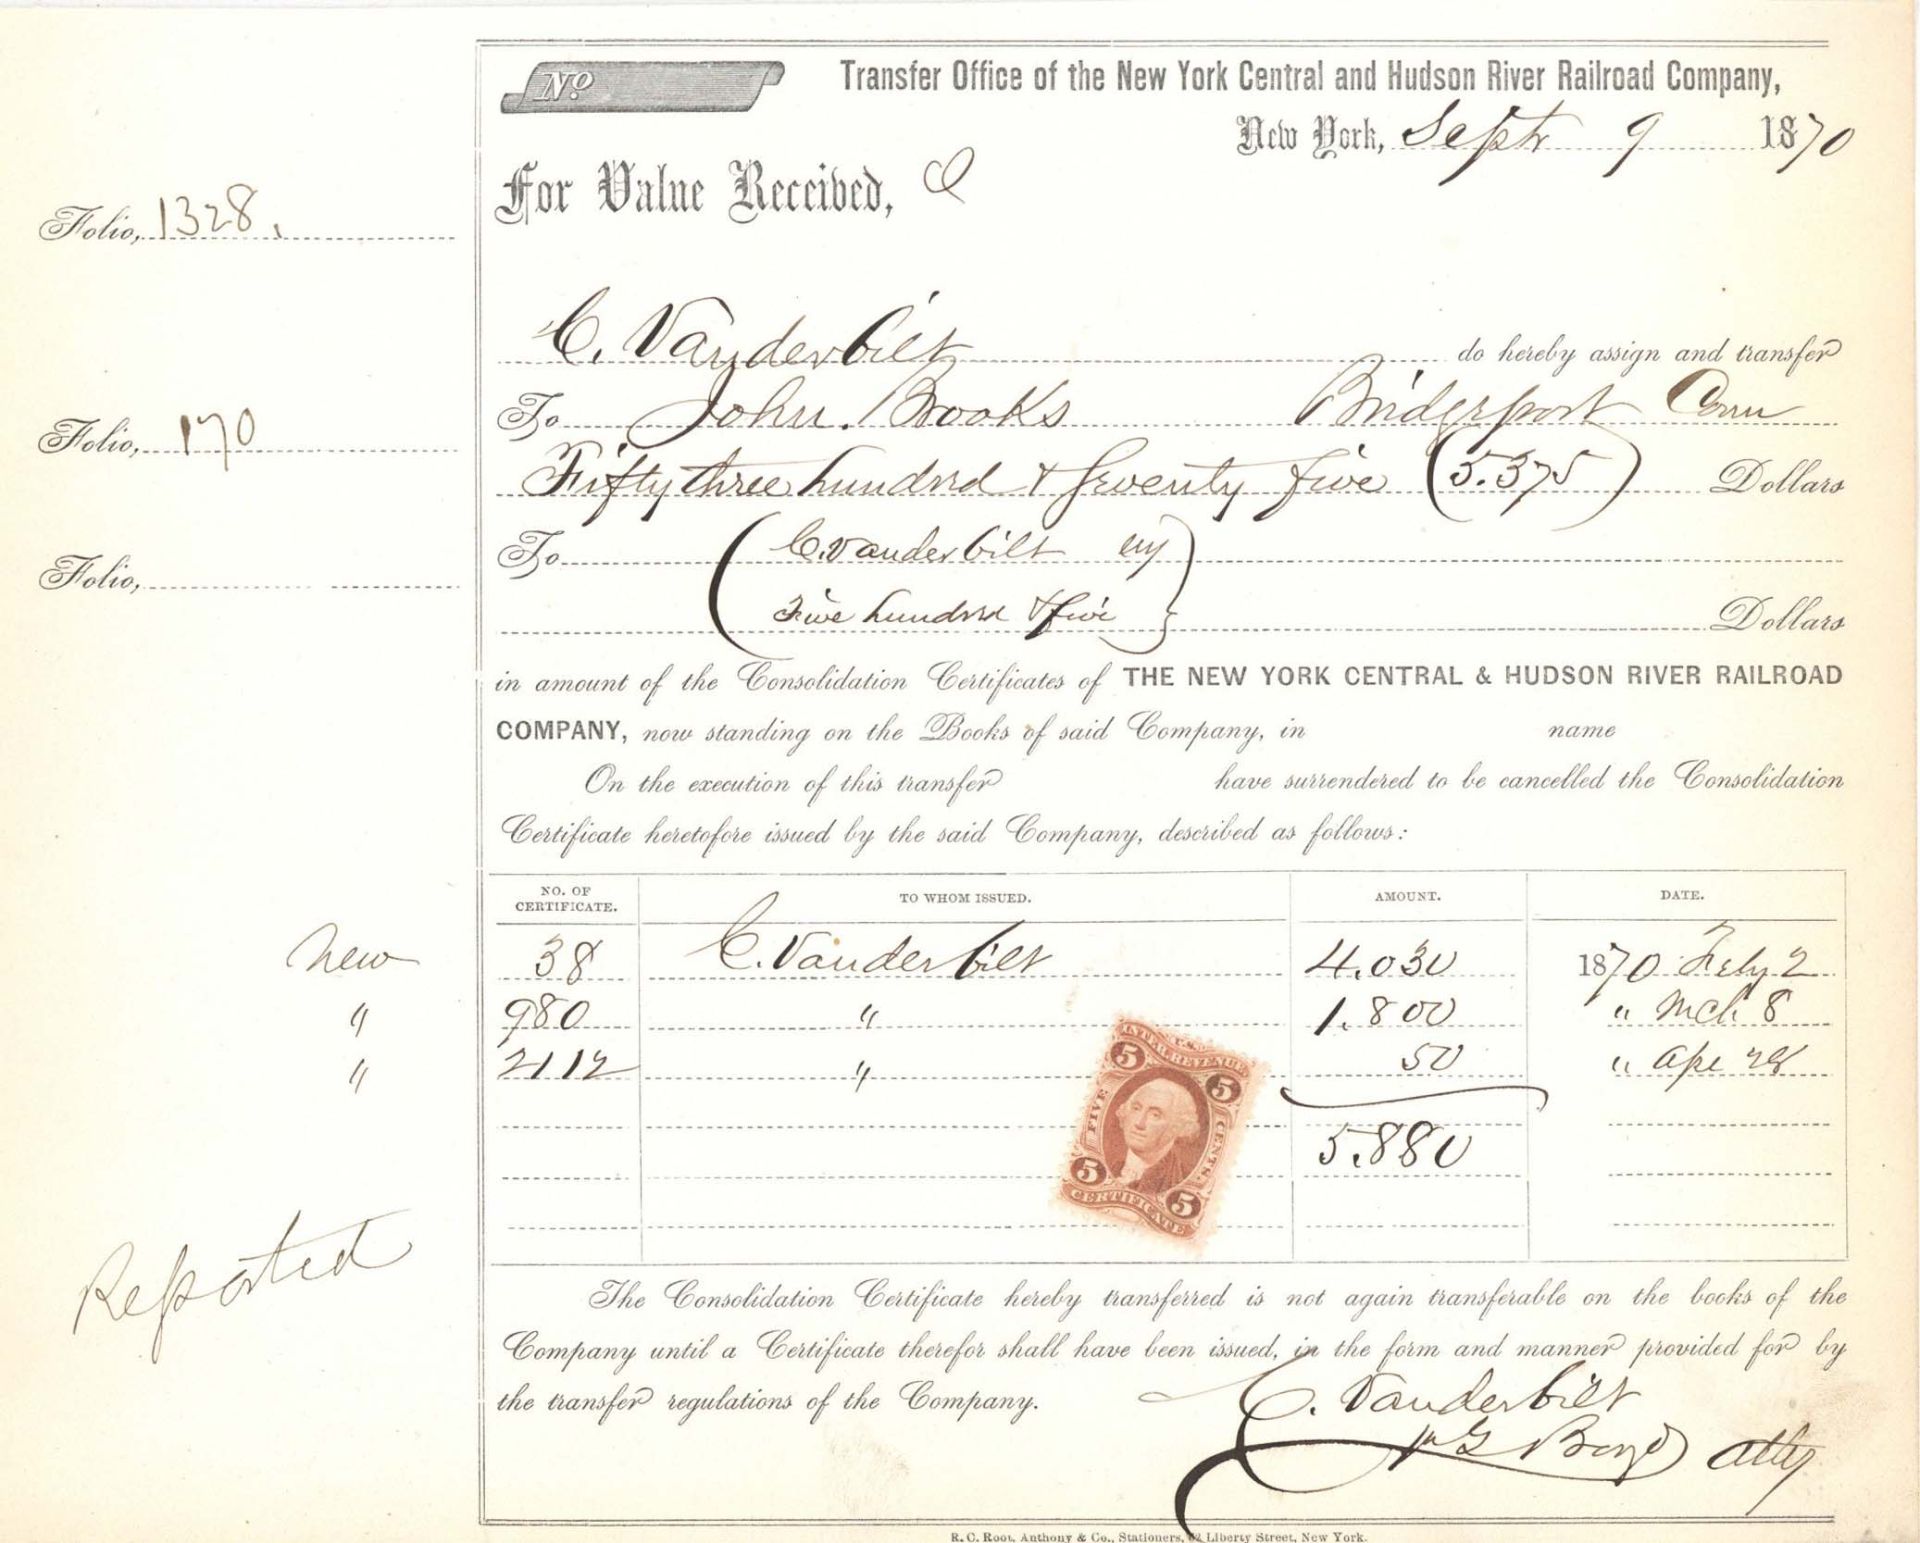 No.
Transfer Office of the New York Central and Hudson River Railroad Company,
New York, Septr 9 1870
For Value Received, I
Folio, 1328.
C. Vanderbilt do hereby assign and transfer
To John. Brooks Bridgeport Conn
Folio, 170
Fifty three hundred & Seventy five (5.375) Dollars
To (C. Vanderbilt
Folio,
Five hundred & five) Dollars
in amount of the Consolidation Certificates of THE NEW YORK CENTRAL & HUDSON RIVER RAILROAD
COMPANY, now standing on the Books of said Company, in name
On the execution of this transfer have surrendered to be cancelled the Consolidation
Certificate heretofore issued by the said Company, described as follows:
NO. OF CERTIFICATE. TO WHOM ISSUED. AMOUNT. DATE.
new 38 C. Vanderbilt 4.030 1870 Feby 2
" 980 " 1.800 " Mch 8
" 2112 " 50 " Apl 28
5.880
U.S. INTER. REVENUE
5 5
FIVE CENTS.
5 5
CERTIFICATE
Reported
The Consolidation Certificate hereby transferred is not again transferable on the books of the
Company until a Certificate therefor shall have been issued, in the form and manner provided for by
the transfer regulations of the Company.
C. Vanderbilt
Boyd atty
R. C. Root, Anthony & Co., Stationers, 62 Liberty Street, New York.